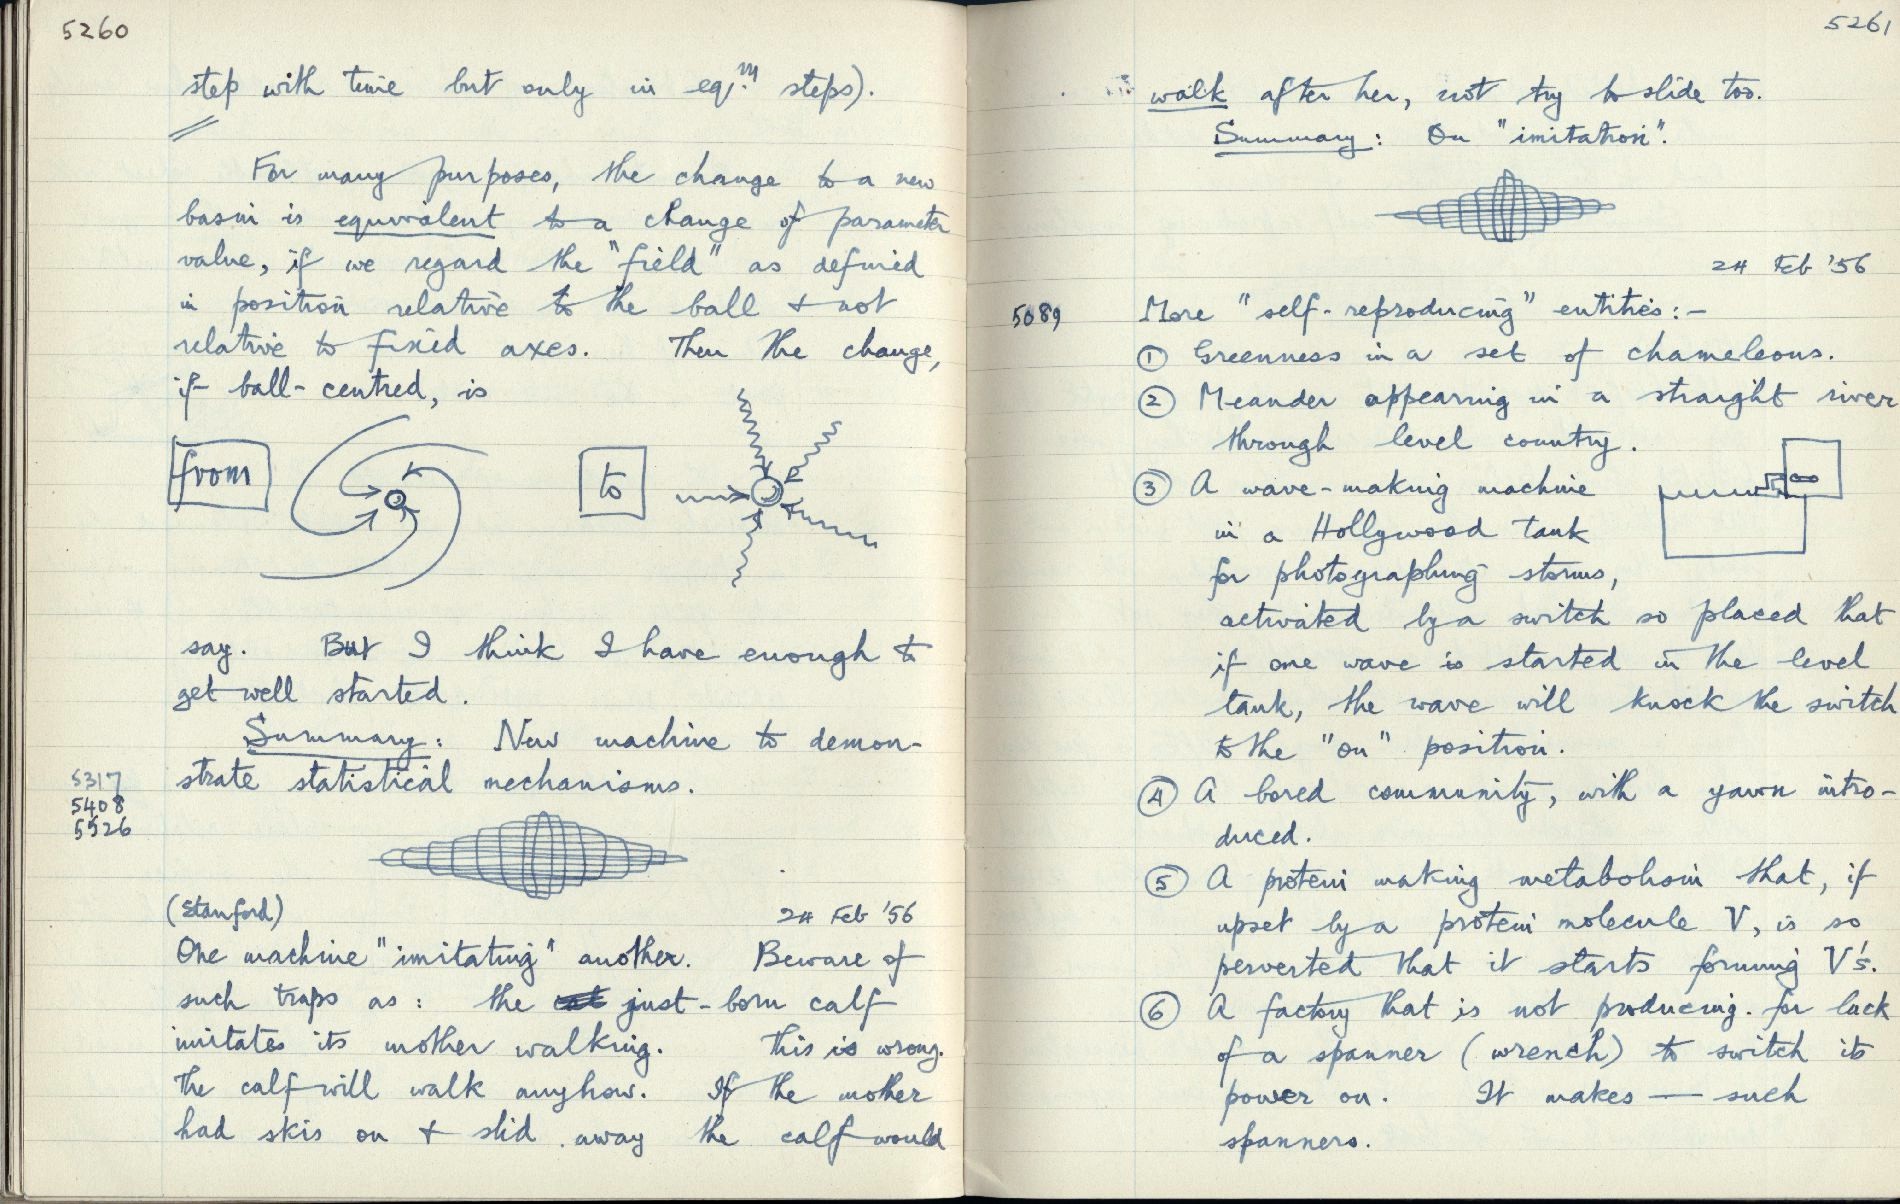 5260
step with time but only in eqm steps).
For many purposes, the change to a new
basin is equivalent to a change of parameter
value, if we regard the "field" as defined
in position relative to the ball & not
relative to fixed axes. Then the change,
if ball-centred, is
from
to
say. But I think I have enough to
get well started.
Summary: New machine to demon-
strate statistical mechanisms.
5317
5408
5526
(Stanford)
24 Feb '56
One machine "imitating" another. Beware of
such traps as: the just-born calf
imitates its mother walking. This is wrong.
The calf will walk anyhow. If the mother
had skis on & slid away the calf would
5261
walk after her, not try to slide too.
Summary: On "imitation".
24 Feb '56
5089
More "self-reproducing" entities:-
① Greenness in a set of chameleons.
② Meander appearing in a straight river
through level country.
③ A wave-making machine
in a Hollywood tank
for photographing storms,
activated by a switch so placed that
if one wave is started in the level
tank, the wave will knock the switch
to the "on" position.
④ A bored community, with a yawn intro-
duced.
⑤ A protein making metabolism that, if
upset by a protein molecule V, is so
perverted that it starts forming V's.
⑥ A factory that is not producing for lack
of a spanner (wrench) to switch its
power on. It makes — such
spanners.